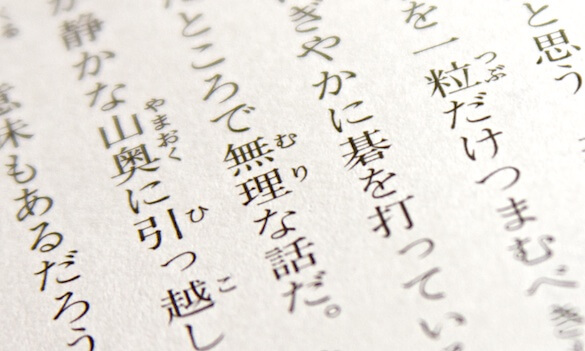 と思う
を一粒だけつまむべき
ぎやかに碁を打ってい
たところで無理な話だ。
が静かな山奥に引っ越し
意味もあるだろう